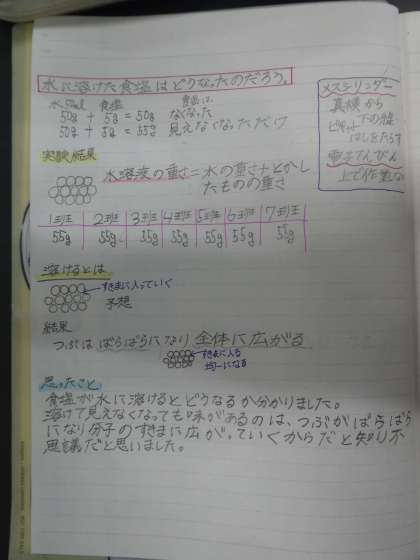 水に溶けた食塩はどうなったのだろう。
水50ml 食塩
50g + 5g = 50g なくなった
50g + 5g = 55g 見えなくなっただけ
メスシリンダー
真横から
下の線
電子てんびん
実験結果
水溶液の重さ=水の重さ+とかし
たものの重さ
1班 2班 3班 4班 5班 6班 7班
55g 55g 55g 55g 55g 55g 55g
溶けるとは
すきまに入っていく
予想
結果
つぶは ばらばらになり 全体に広がる
すきまに入る
均一になる
思ったこと
食塩が水に溶けるとどうなるか分かりました。
溶けて見えなくなっても味があるのは、つぶがばらばら
になり分子のすきまに広がっていくからだと知り不
思議だと思いました。